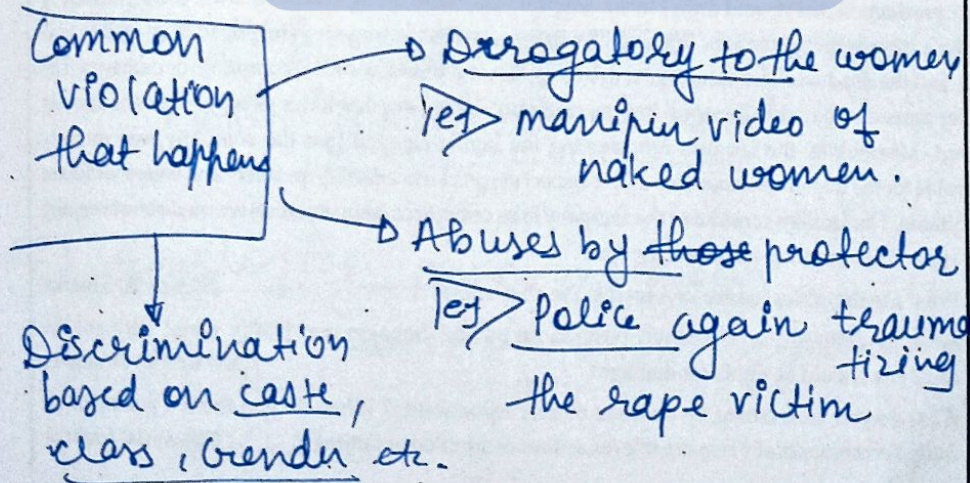 Common
violation
that happens
→ Derrogatory to the women
eg> manipur video of
naked women.
→ Abuses by those protector
eg> Police again trauma
tizing
the rape victim
Discrimination
based on caste,
class, Gender etc.